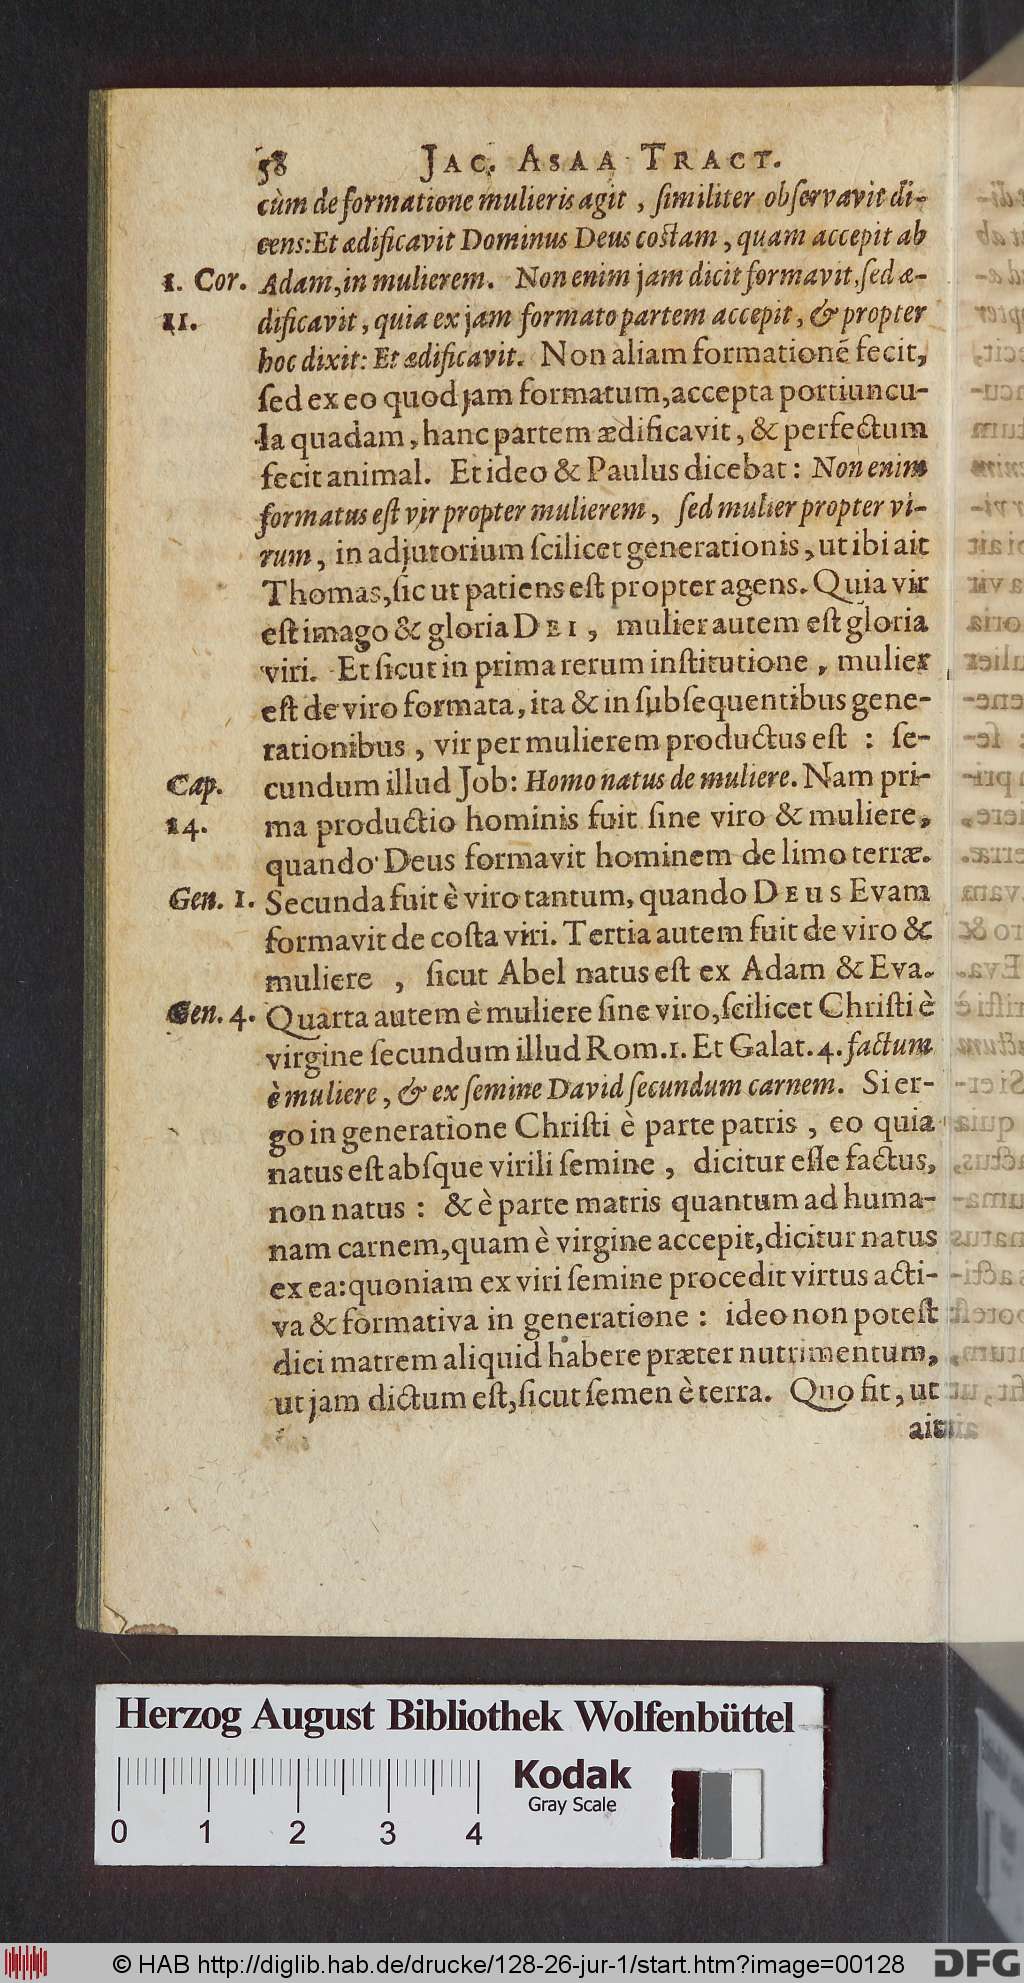 58 JAC. ASAA TRACT.
cùm de formatione mulieris agit, ſimiliter obſervavit di-
cens: Et ædificavit Dominus Deus coſtam, quam accepit ab
1. Cor. Adam, in mulierem. Non enim jam dicit formavit, ſed æ-
11. dificavit, quia ex jam formato partem accepit, & propter
hoc dixit: Et ædificavit. Non aliam formationē fecit,
ſed ex eo quod jam formatum, accepta portiuncu-
la quadam, hanc partem ædificavit, & perfectum
fecit animal. Et ideo & Paulus dicebat: Non enim
formatus eſt vir propter mulierem, ſed mulier propter vi-
rum, in adjutorium ſcilicet generationis, ut ibi ait
Thomas, ſic ut patiens eſt propter agens. Quia vir
eſt imago & gloria DEI, mulier autem eſt gloria
viri. Et ſicut in prima rerum inſtitutione, mulier
eſt de viro formata, ita & in ſubſequentibus gene-
rationibus, vir per mulierem productus eſt: ſe-
Cap. cundum illud Job: Homo natus de muliere. Nam pri-
14. ma productio hominis fuit ſine viro & muliere,
quando Deus formavit hominem de limo terræ.
Gen. 1. Secunda fuit è viro tantum, quando DEUS Evam
formavit de coſta viri. Tertia autem fuit de viro &
muliere, ſicut Abel natus eſt ex Adam & Eva.
Gen. 4. Quarta autem è muliere ſine viro, ſcilicet Chriſti è
virgine ſecundum illud Rom. 1. Et Galat. 4. factum
è muliere, & ex ſemine David ſecundum carnem. Si er-
go in generatione Chriſti è parte patris, eo quia
natus eſt abſque virili ſemine, dicitur eſſe factus,
non natus: & è parte matris quantum ad huma-
nam carnem, quam è virgine accepit, dicitur natus
ex ea: quoniam ex viri ſemine procedit virtus acti-
va & formativa in generatione: ideo non poteſt
dici matrem aliquid habere præter nutrimentum,
ut jam dictum eſt, ſicut ſemen è terra. Quo fit, ut
ait
Herzog August Bibliothek Wolfenbüttel
Kodak
Gray Scale
0 1 2 3 4
© HAB http://diglib.hab.de/drucke/128-26-jur-1/start.htm?image=00128
DFG